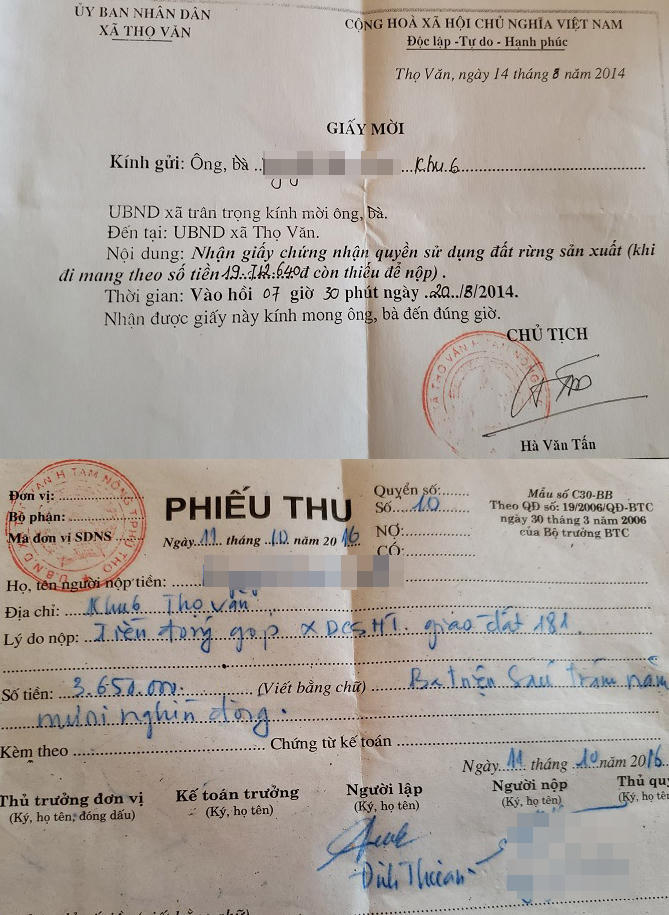 ỦY BAN NHÂN DÂN
XÃ THỌ VĂN
CỘNG HOÀ XÃ HỘI CHỦ NGHĨA VIỆT NAM
Độc lập -Tự do - Hạnh phúc
Thọ Văn, ngày 14 tháng 8 năm 2014
GIẤY MỜI
Kính gửi: Ông, bà ... Khu 6
UBND xã trân trọng kính mời ông, bà.
Đến tại: UBND xã Thọ Văn.
Nội dung: Nhận giấy chứng nhận quyền sử dụng đất rừng sản xuất (khi
đi mang theo số tiền 19.712.640đ còn thiếu để nộp) .
Thời gian: Vào hồi 07 giờ 30 phút ngày 20/8/2014.
Nhận được giấy này kính mong ông, bà đến đúng giờ.
CHỦ TỊCH
Hà Văn Tấn
Đơn vị:
Bộ phận:
Mã đơn vị SDNS
PHIẾU THU
Ngày 11 tháng 10 năm 2016
Quyển số:
Số 10
NỢ:
CÓ:
Mẫu số C30-BB
Theo QĐ số: 19/2006/QĐ-BTC
ngày 30 tháng 3 năm 2006
của Bộ trưởng BTC
Họ, tên người nộp tiền:
Địa chỉ: Khu 6 Thọ Văn
Lý do nộp: Tiền đóng góp XDCSHT. giao đất 181
Số tiền: 3.650.000 (Viết bằng chữ) Ba triệu sáu trăm năm
mươi nghìn đồng.
Kèm theo Chứng từ kế toán
Ngày 11 tháng 10 năm 2016
Thủ trưởng đơn vị
(Ký, họ tên, đóng dấu)
Kế toán trưởng
(Ký, họ tên)
Người lập
(Ký, họ tên)
Người nộp
(Ký, họ tên)
Thủ quỹ
(Ký, họ tên)